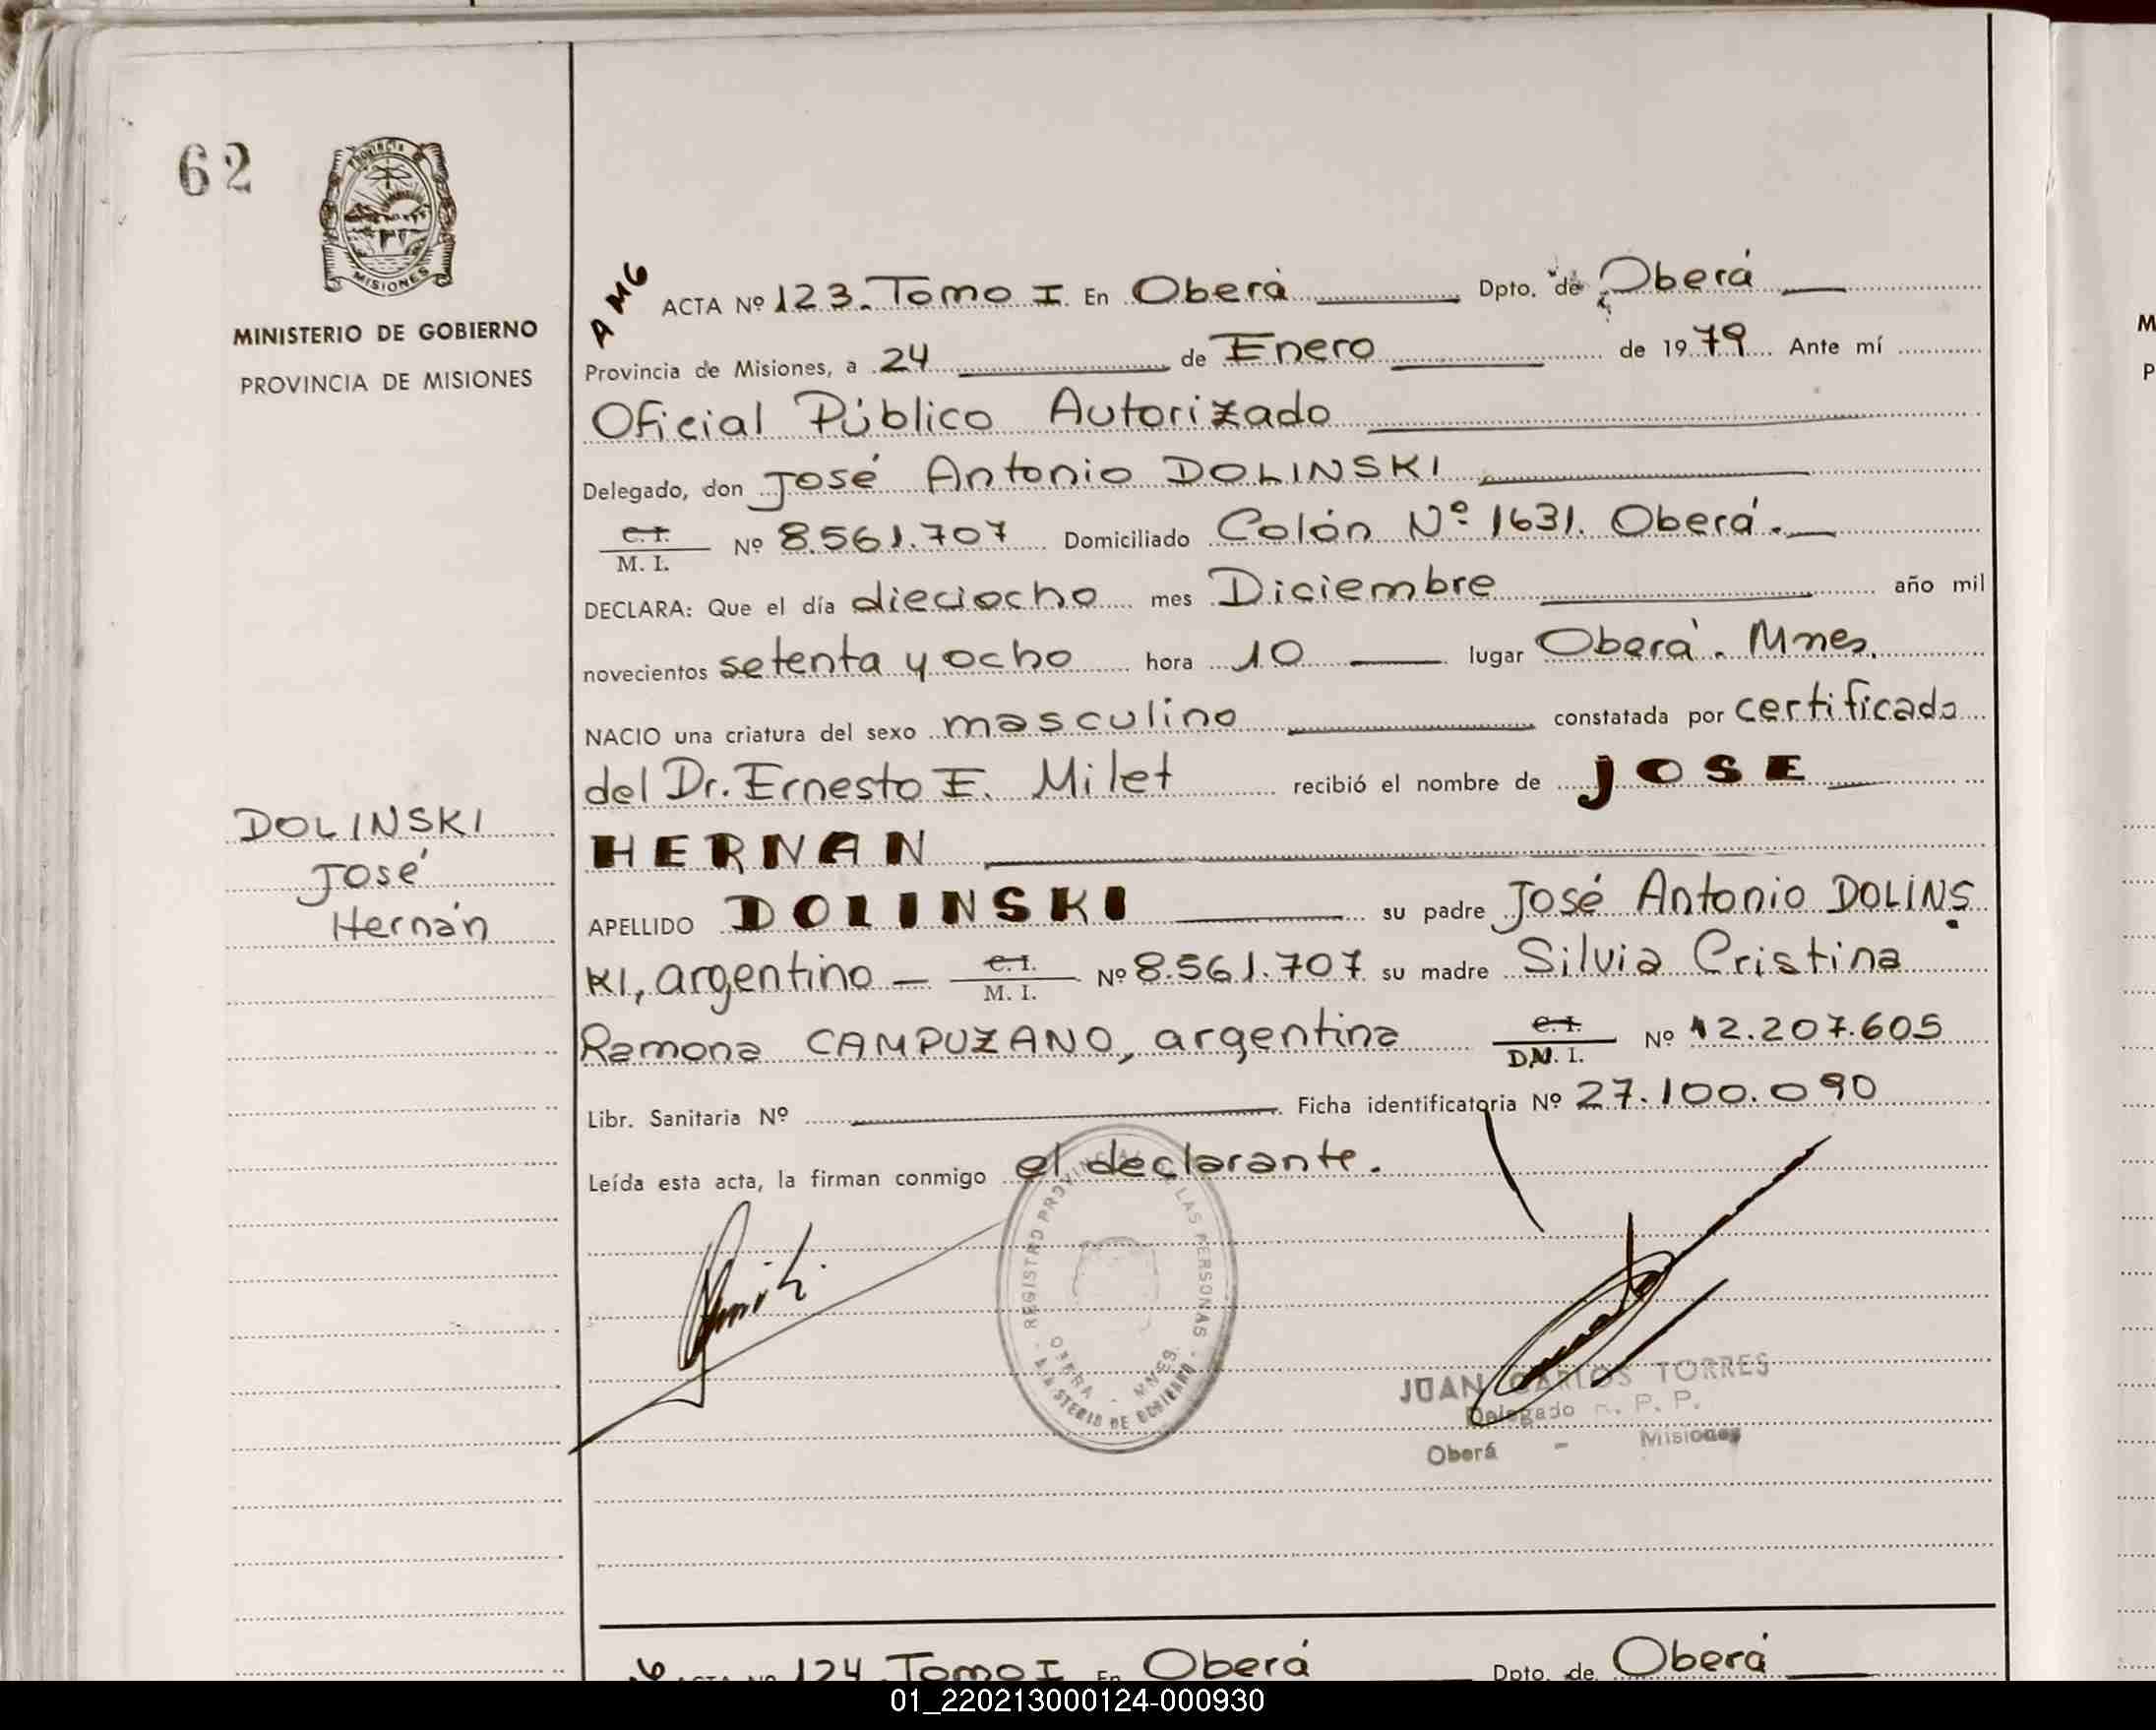 62
PROVINCIA DE
MISIONES
MINISTERIO DE GOBIERNO
PROVINCIA DE MISIONES
DOLINSKI
José
Hernán
AMG
ACTA Nº 123. Tomo I En Oberá Dpto. de Oberá
Provincia de Misiones, a 24 de Enero de 1979 Ante mí
Oficial Público Autorizado
Delegado, don José Antonio DOLINSKI
C. I.
M. I. Nº 8.561.707 Domiciliado Colón Nº 1631. Oberá.
DECLARA: Que el día dieciocho mes Diciembre año mil
novecientos setenta y ocho hora 10 lugar Oberá. Mnes.
NACIO una criatura del sexo masculino constatada por certificado
del Dr. Ernesto E. Milet recibió el nombre de JOSE
HERNAN
APELLIDO DOLINSKI su padre José Antonio DOLINS
KI, argentino C. I. M. I. Nº 8.561.707 su madre Silvia Cristina
Ramona CAMPUZANO, argentina C. I. D.N. I. Nº 12.207.605
Libr. Sanitaria Nº Ficha identificatoria Nº 27.100.090
Leída esta acta, la firman conmigo el declarante.
REGISTRO PROVINCIAL DE LAS PERSONAS
OBERA - MNES.
MINISTERIO DE GOBIERNO
JUAN CARLOS TORRES
Delegado R. P. P.
Oberá - Misiones
ACTA Nº 124 Tomo I En Oberá Dpto. de Oberá
01_220213000124-000930